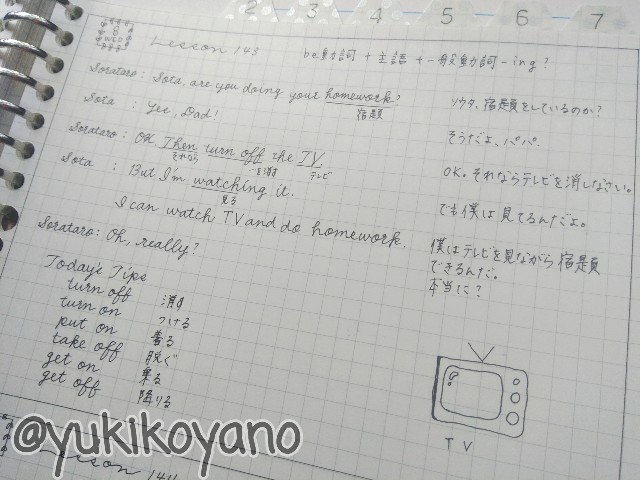 2 3 4 5 6 7
Lesson 143 be動詞 + 主語 + 一般動詞-ing?
Sorataro: Sota, are you doing your homework? ソウタ、宿題をしているのか?
宿題
Sota : Yes, Dad! そうだよ、パパ.
Sorataro: OK. Then turn off the TV. OK。それならテレビを消しなさい。
それなら ~を消す テレビ
Sota : But I'm watching it. でも僕は見てるんだよ。
見る
I can watch TV and do homework. 僕はテレビを見ながら宿題
できるんだ。
Sorataro: Oh, really? 本当に?
Today's Tips
turn off 消す
turn on つける
put on 着る
take off 脱ぐ
get on 乗る
get off 降りる
TV
@yukikoyano
Lesson 144